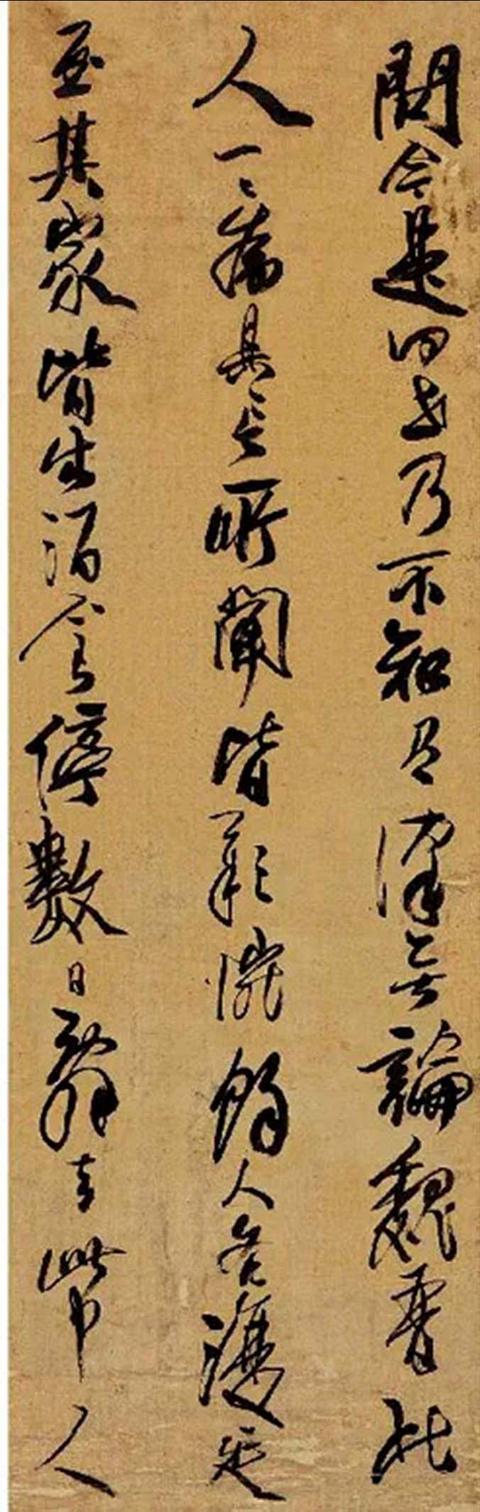 問今是何世乃不知有漢無論魏晉此
人一〻為具言所聞皆歎惋餘人各復延
至其家皆出酒食停數日辭去此中人